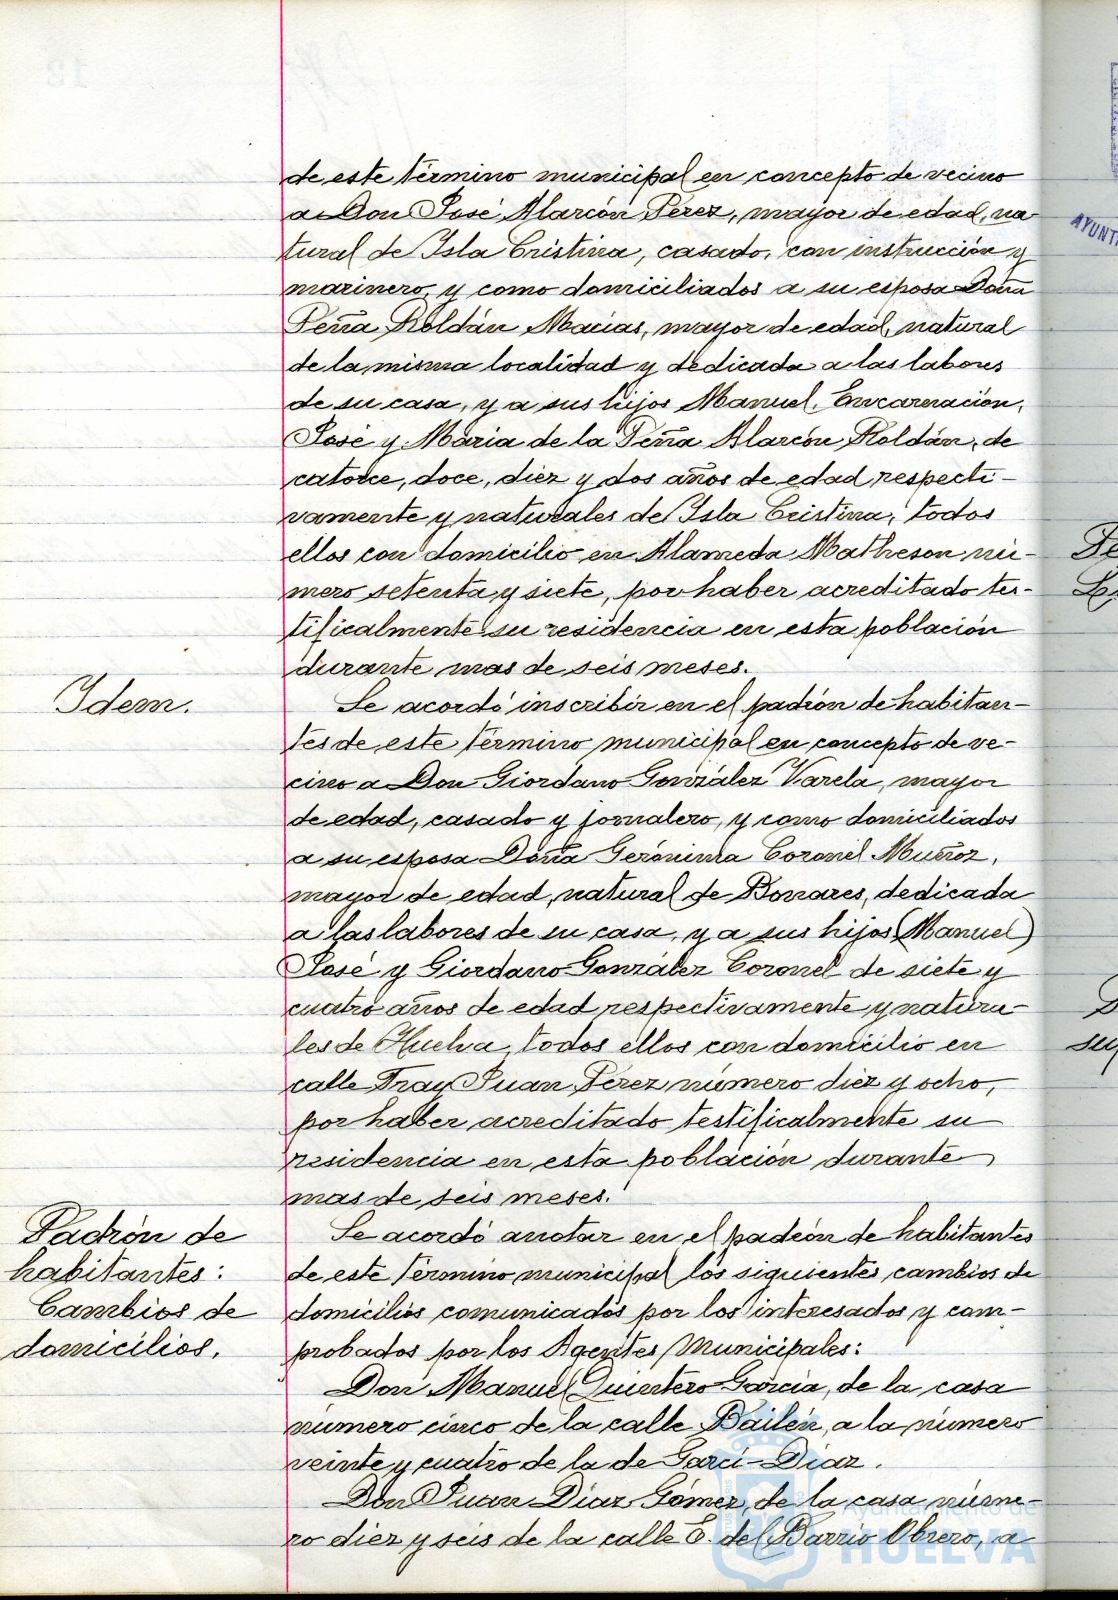 de este término municipal en concepto de vecino
a Don José Alarcón Pérez, mayor de edad, na-
tural de Isla Cristina, casado, con instrucción y
marinero, y como domiciliados a su esposa Doña
Peña Roldán Macías, mayor de edad, natural
de la misma localidad y dedicada a las labores
de su casa, y a sus hijos Manuel, Encarnación,
José y María de la Peña Alarcón Roldán, de
catorce, doce, diez y dos años de edad respecti-
vamente y naturales de Isla Cristina, todos
ellos con domicilio en Alameda Matheson nú-
mero setenta y siete, por haber acreditado tes-
tificalmente su residencia en esta población
durante mas de seis meses.
Idem.
Se acordó inscribir en el padrón de habitan-
tes de este término municipal en concepto de ve-
cino a Don Giordano González Varela, mayor
de edad, casado y jornalero, y como domiciliados
a su esposa Doña Gerónima Coronel Muñoz,
mayor de edad, natural de Bonares, dedicada
a las labores de su casa, y a sus hijos (Manuel)
José y Giordano González Coronel de siete y
cuatro años de edad respectivamente y natura-
les de Huelva, todos ellos con domicilio en
calle Fray Juan Pérez número diez y ocho,
por haber acreditado testificalmente su
residencia en esta población durante
mas de seis meses.
Padrón de
habitantes:
Cambios de
domicilios.
Se acordó anotar en el padrón de habitantes
de este término municipal los siguientes cambios de
domicilios comunicados por los interesados y com-
probados por los Agentes Municipales:
Don Manuel Quintero García, de la casa
número cinco de la calle Bailén, a la número
veinte y cuatro de la de Garci-Díaz.
Don Juan Díaz Gómez, de la casa núme-
ro diez y seis de la calle E. del Barrio Obrero, a
Ayuntamiento de
HUELVA